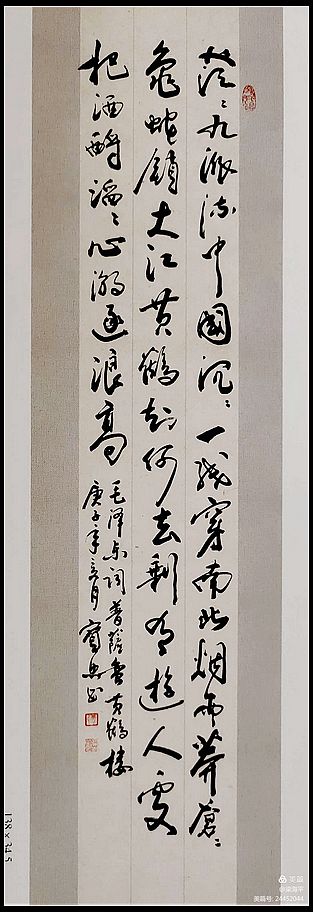 茫〻九派流中國沉〻一线穿南北烟雨莽蒼〻
龜蛇鎖大江黄鶴知何去剩有遊人處
把酒酹滔〻心潮逐浪高
毛泽东词菩萨蛮黄鹤楼
庚子年
138×34.5
美篇
@梁海平
美篇号: 24452044